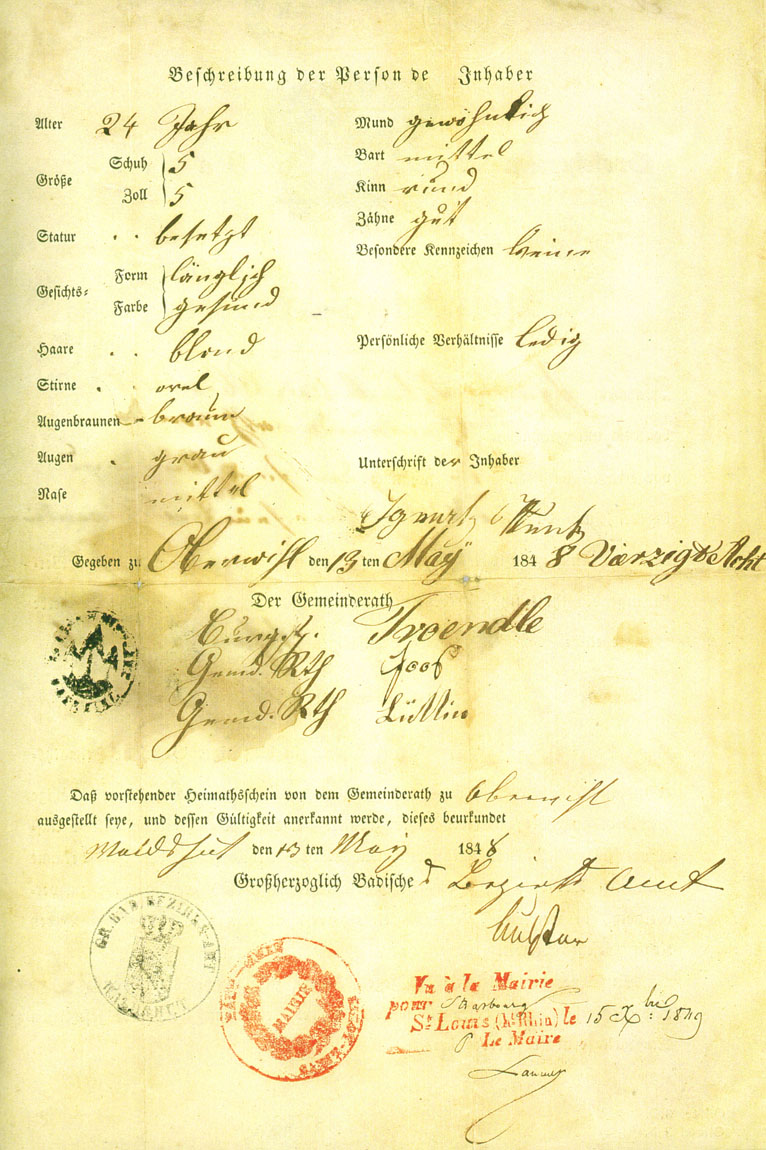 Beschreibung der Person de Inhaber
Alter 24 Jahr
Größe Schuh 5
Zoll 5
Statur besetzt
Gesichts= Form länglich
Farbe gesund
Haare blond
Stirne oval
Augenbraunen braun
Augen grau
Nase mittel
Mund gewöhnlich
Bart mittel
Kinn rund
Zähne gut
Besondere Kennzeichen keine
Persönliche Verhältnisse ledig
Unterschrift der Inhaber
Gegeben zu Oberwihl den 13 ten May 184 8 Vierzig & Acht
Der Gemeinderath
Burgstr. Troendle
Gemd. Rth Joos
Gemd. Rth Lüttin
Daß vorstehender Heimathsschein von dem Gemeinderath zu Oberwihl
ausgestellt seye, und dessen Gültigkeit anerkannt werde, dieses beurkundet
Waldshut den 13 ten May 184 8
Großherzoglich Badisches Bezirks Amt
GR. BAD. BEZIRKS-AMT
WALDSHUT
MAIRIE
Vu à la Mairie
pour Strasbourg
St Louis (Ht Rhin) le 15 Xbre 1849
Le Maire